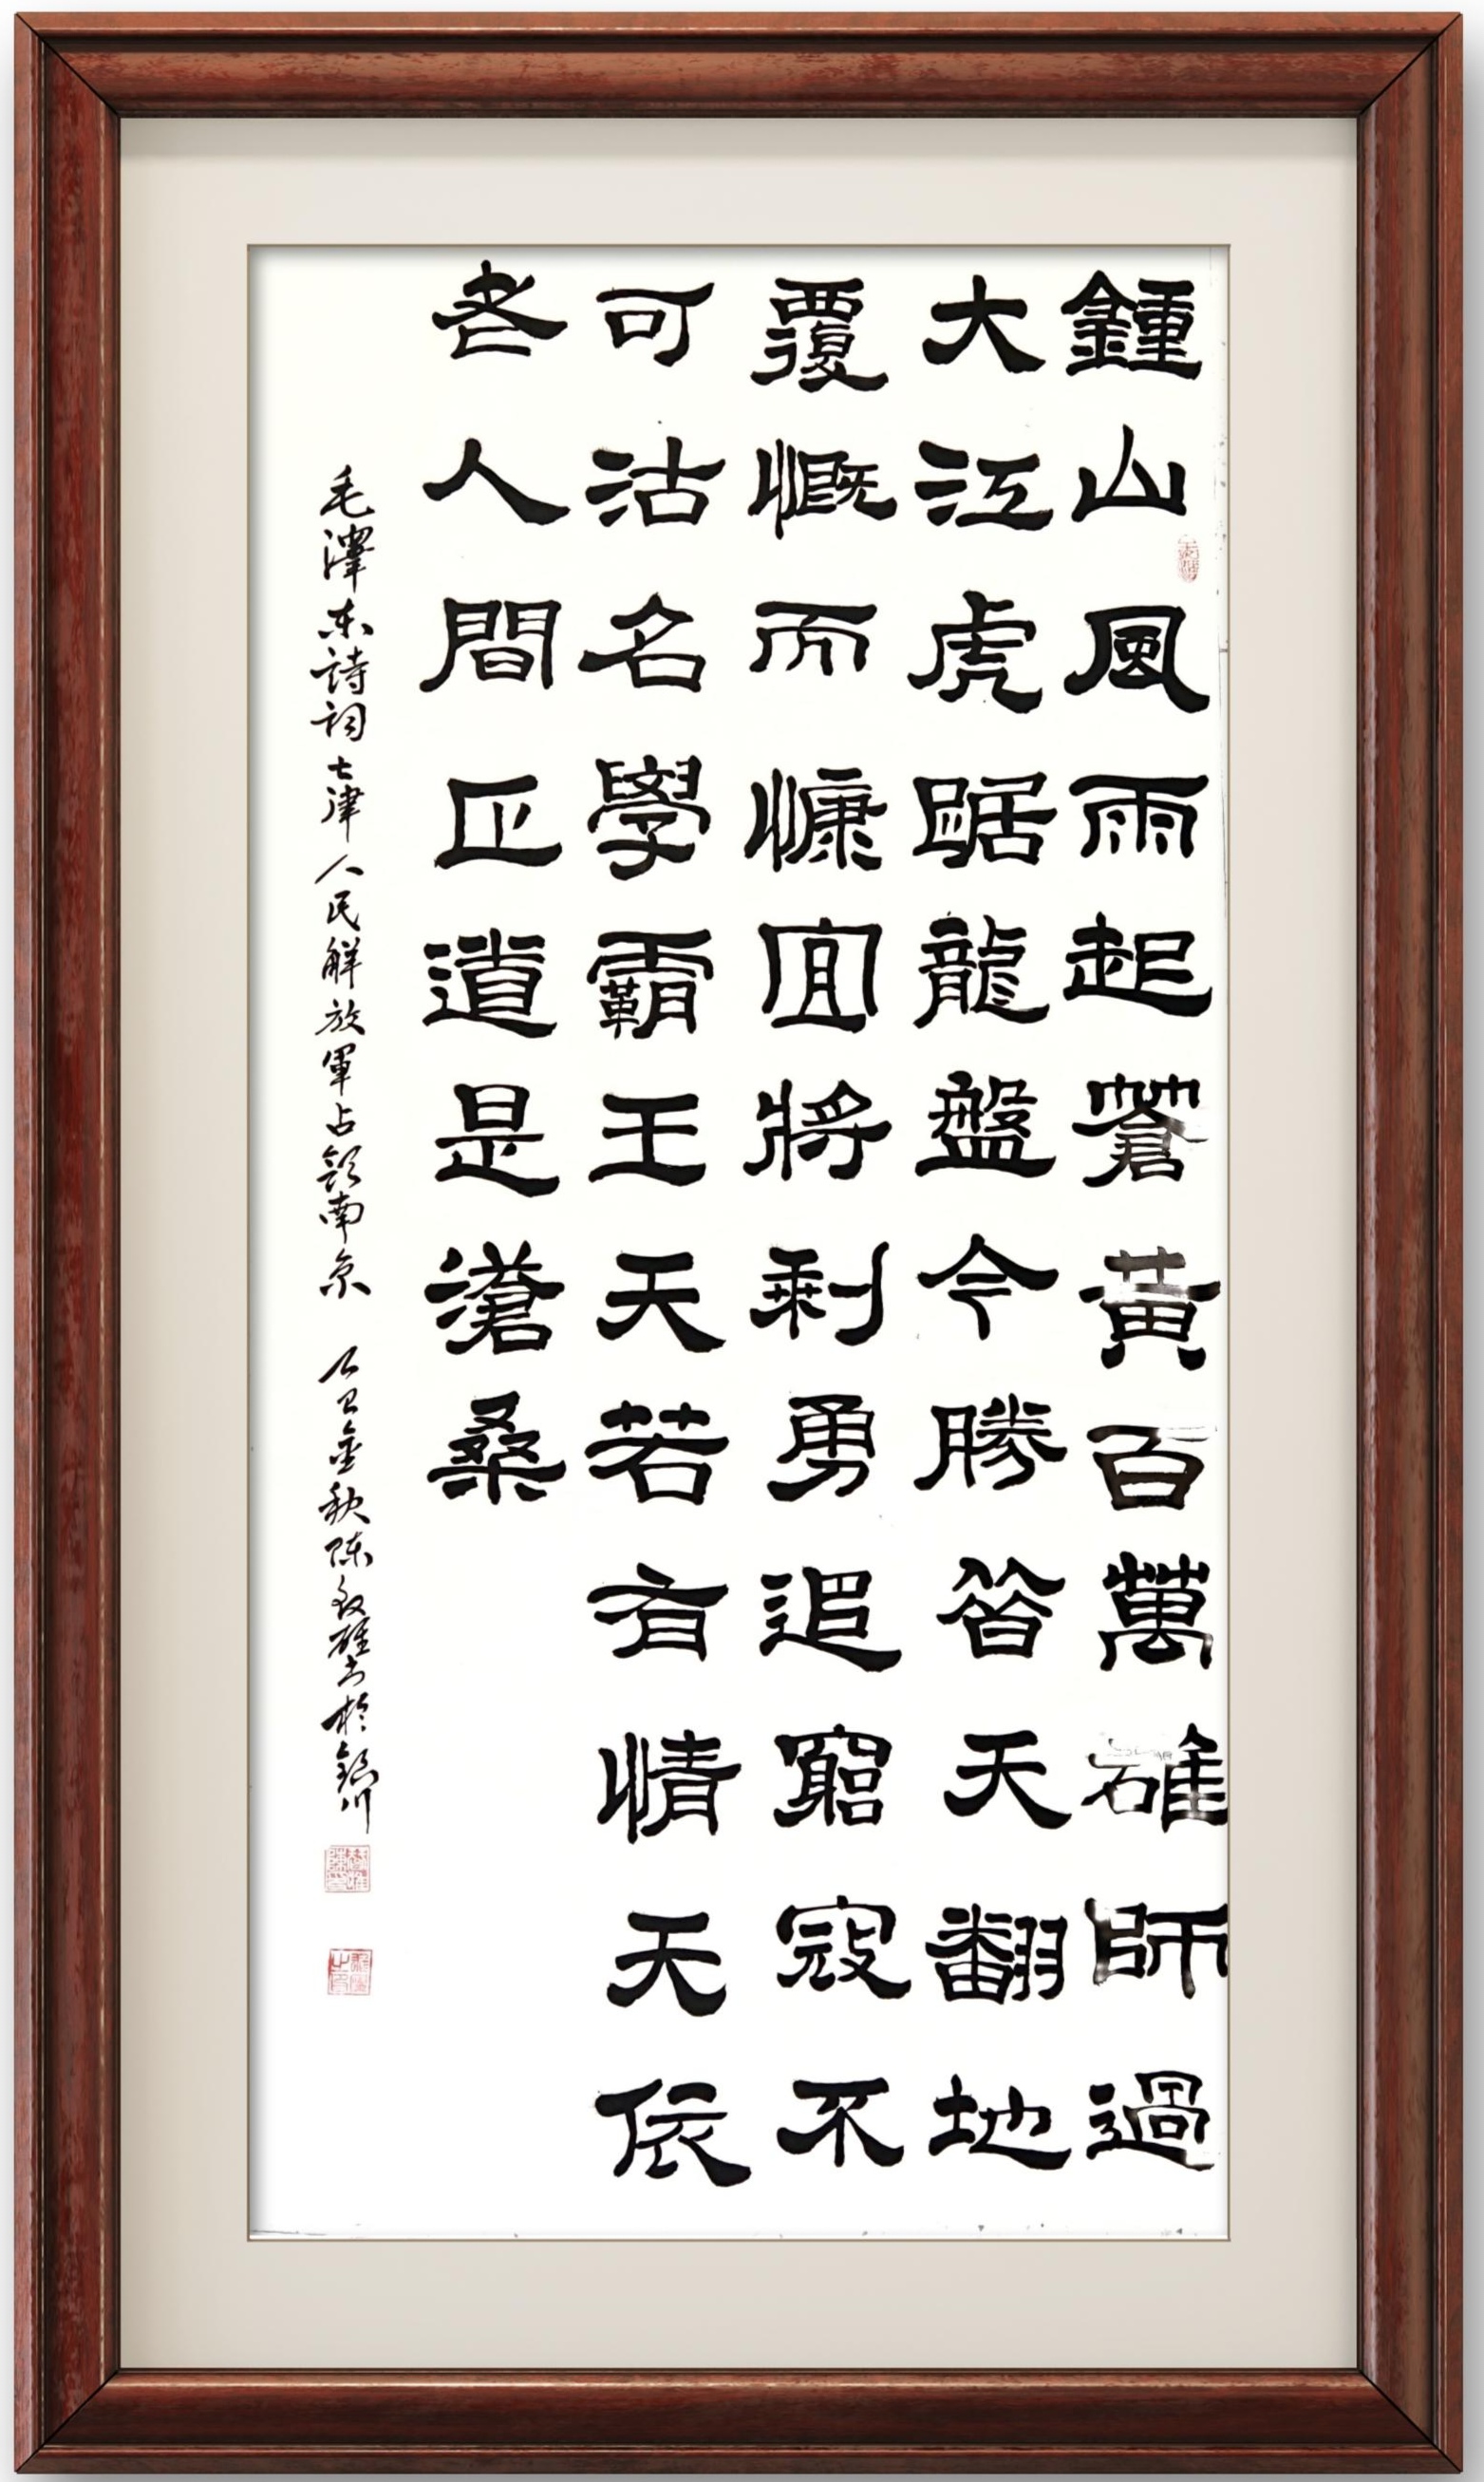 鍾山風雨起蒼黃百萬雄師過
大江虎踞龍盤今勝昔天翻地
覆慨而慷宜將剩勇追窮寇不
可沽名學霸王天若有情天依
老人間正道是滄桑
毛澤东詩词七律人民解放軍占領南京 乙巳金秋陈雄书於川